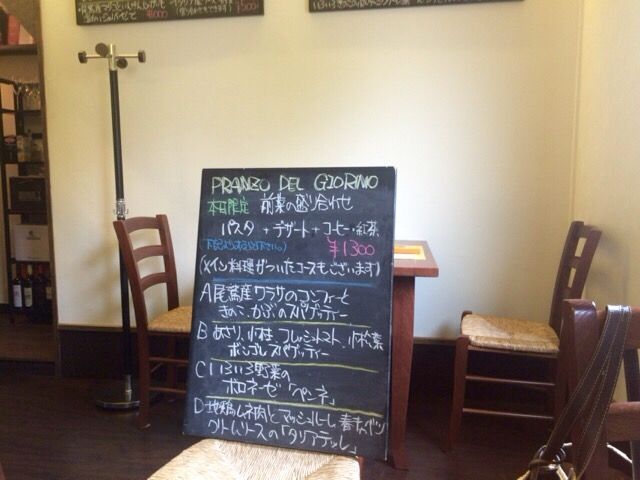 ¥1000
¥1500
PRANZO DEL GIORNO
本日限定 前菜の盛り合わせ
パスタ + デザート + コーヒー・紅茶
下記よりお選び下さい。) ¥1300
(メイン料理がついたコースもございます)
A 尾鷲産ワラサのコンフィーと
きのこ、かぶのスパゲッティー
B あさり、小柱、フレッシュトマト、小松菜
ボンゴレスパゲッティー
C いろいろ野菜の
ボロネーゼ「ペンネ」
D 地鶏ムネ肉とマッシュルーム、春キャベツ
クリームソースの「タリアテッレ」